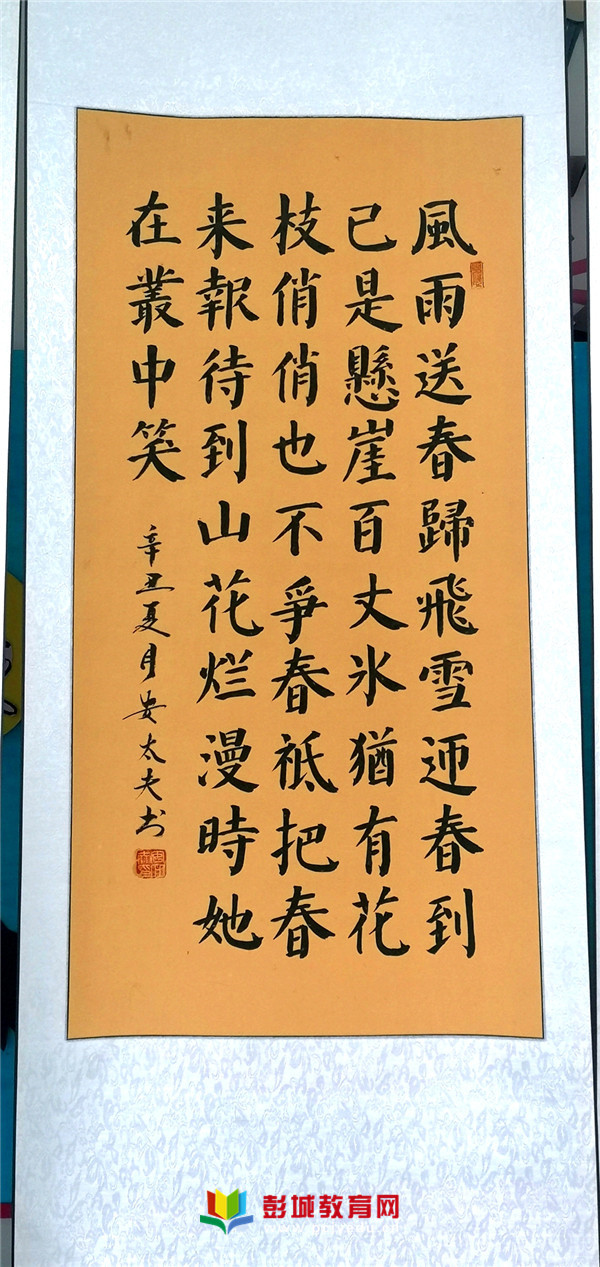 風雨送春歸飛雪迎春到
已是懸崖百丈氷猶有花
枝俏俏也不爭春祗把春
来報待到山花烂漫時她
在叢中笑
辛丑夏月安太夫书
彭城教育网